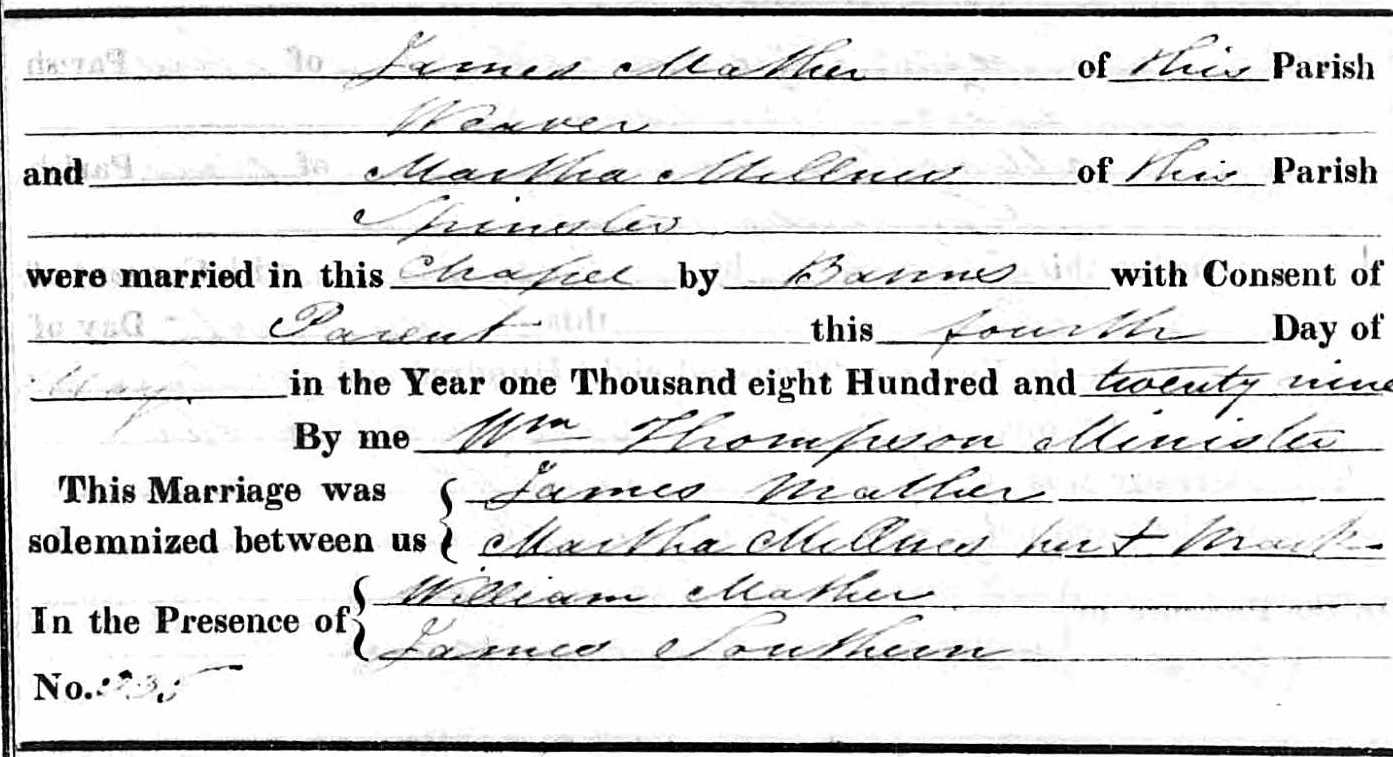 James Mather of this Parish
Weaver
and Martha Millner of this Parish
Spinster
were married in this Chapel by Banns with Consent of
Parent this fourth Day of
May in the Year one Thousand eight Hundred and twenty nine
By me Wm Thompson Minister
This Marriage was James Mather
solemnized between us Martha Millner her + Mark
In the Presence of William Mather
James Southern
No.